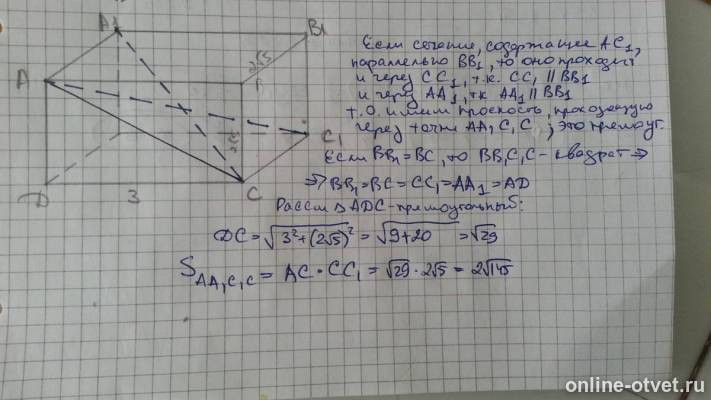 A1
B1
2√5
A
B
C1
2√5
D
3
C
Если сечение, содержащее AC1,
параллельно BB1, то оно проходит
и через CC1, т.к. CC1 || BB1
и через AA1, тк AA1 || BB1
т.о. имеем плоскость, проходящую
через точки AA1C1C, это прямоуг.
Если BB1=BC, то BB1C1C - квадрат ⇒
⇒ BB1=BC=CC1=AA1=AD
Рассм △ADC-прямоугольный:
DC=√3²+(2√5)² = √9+20 = √29
SAA1C1C = AC·CC1 = √29·2√5 = 2√145
online-otvet.ru